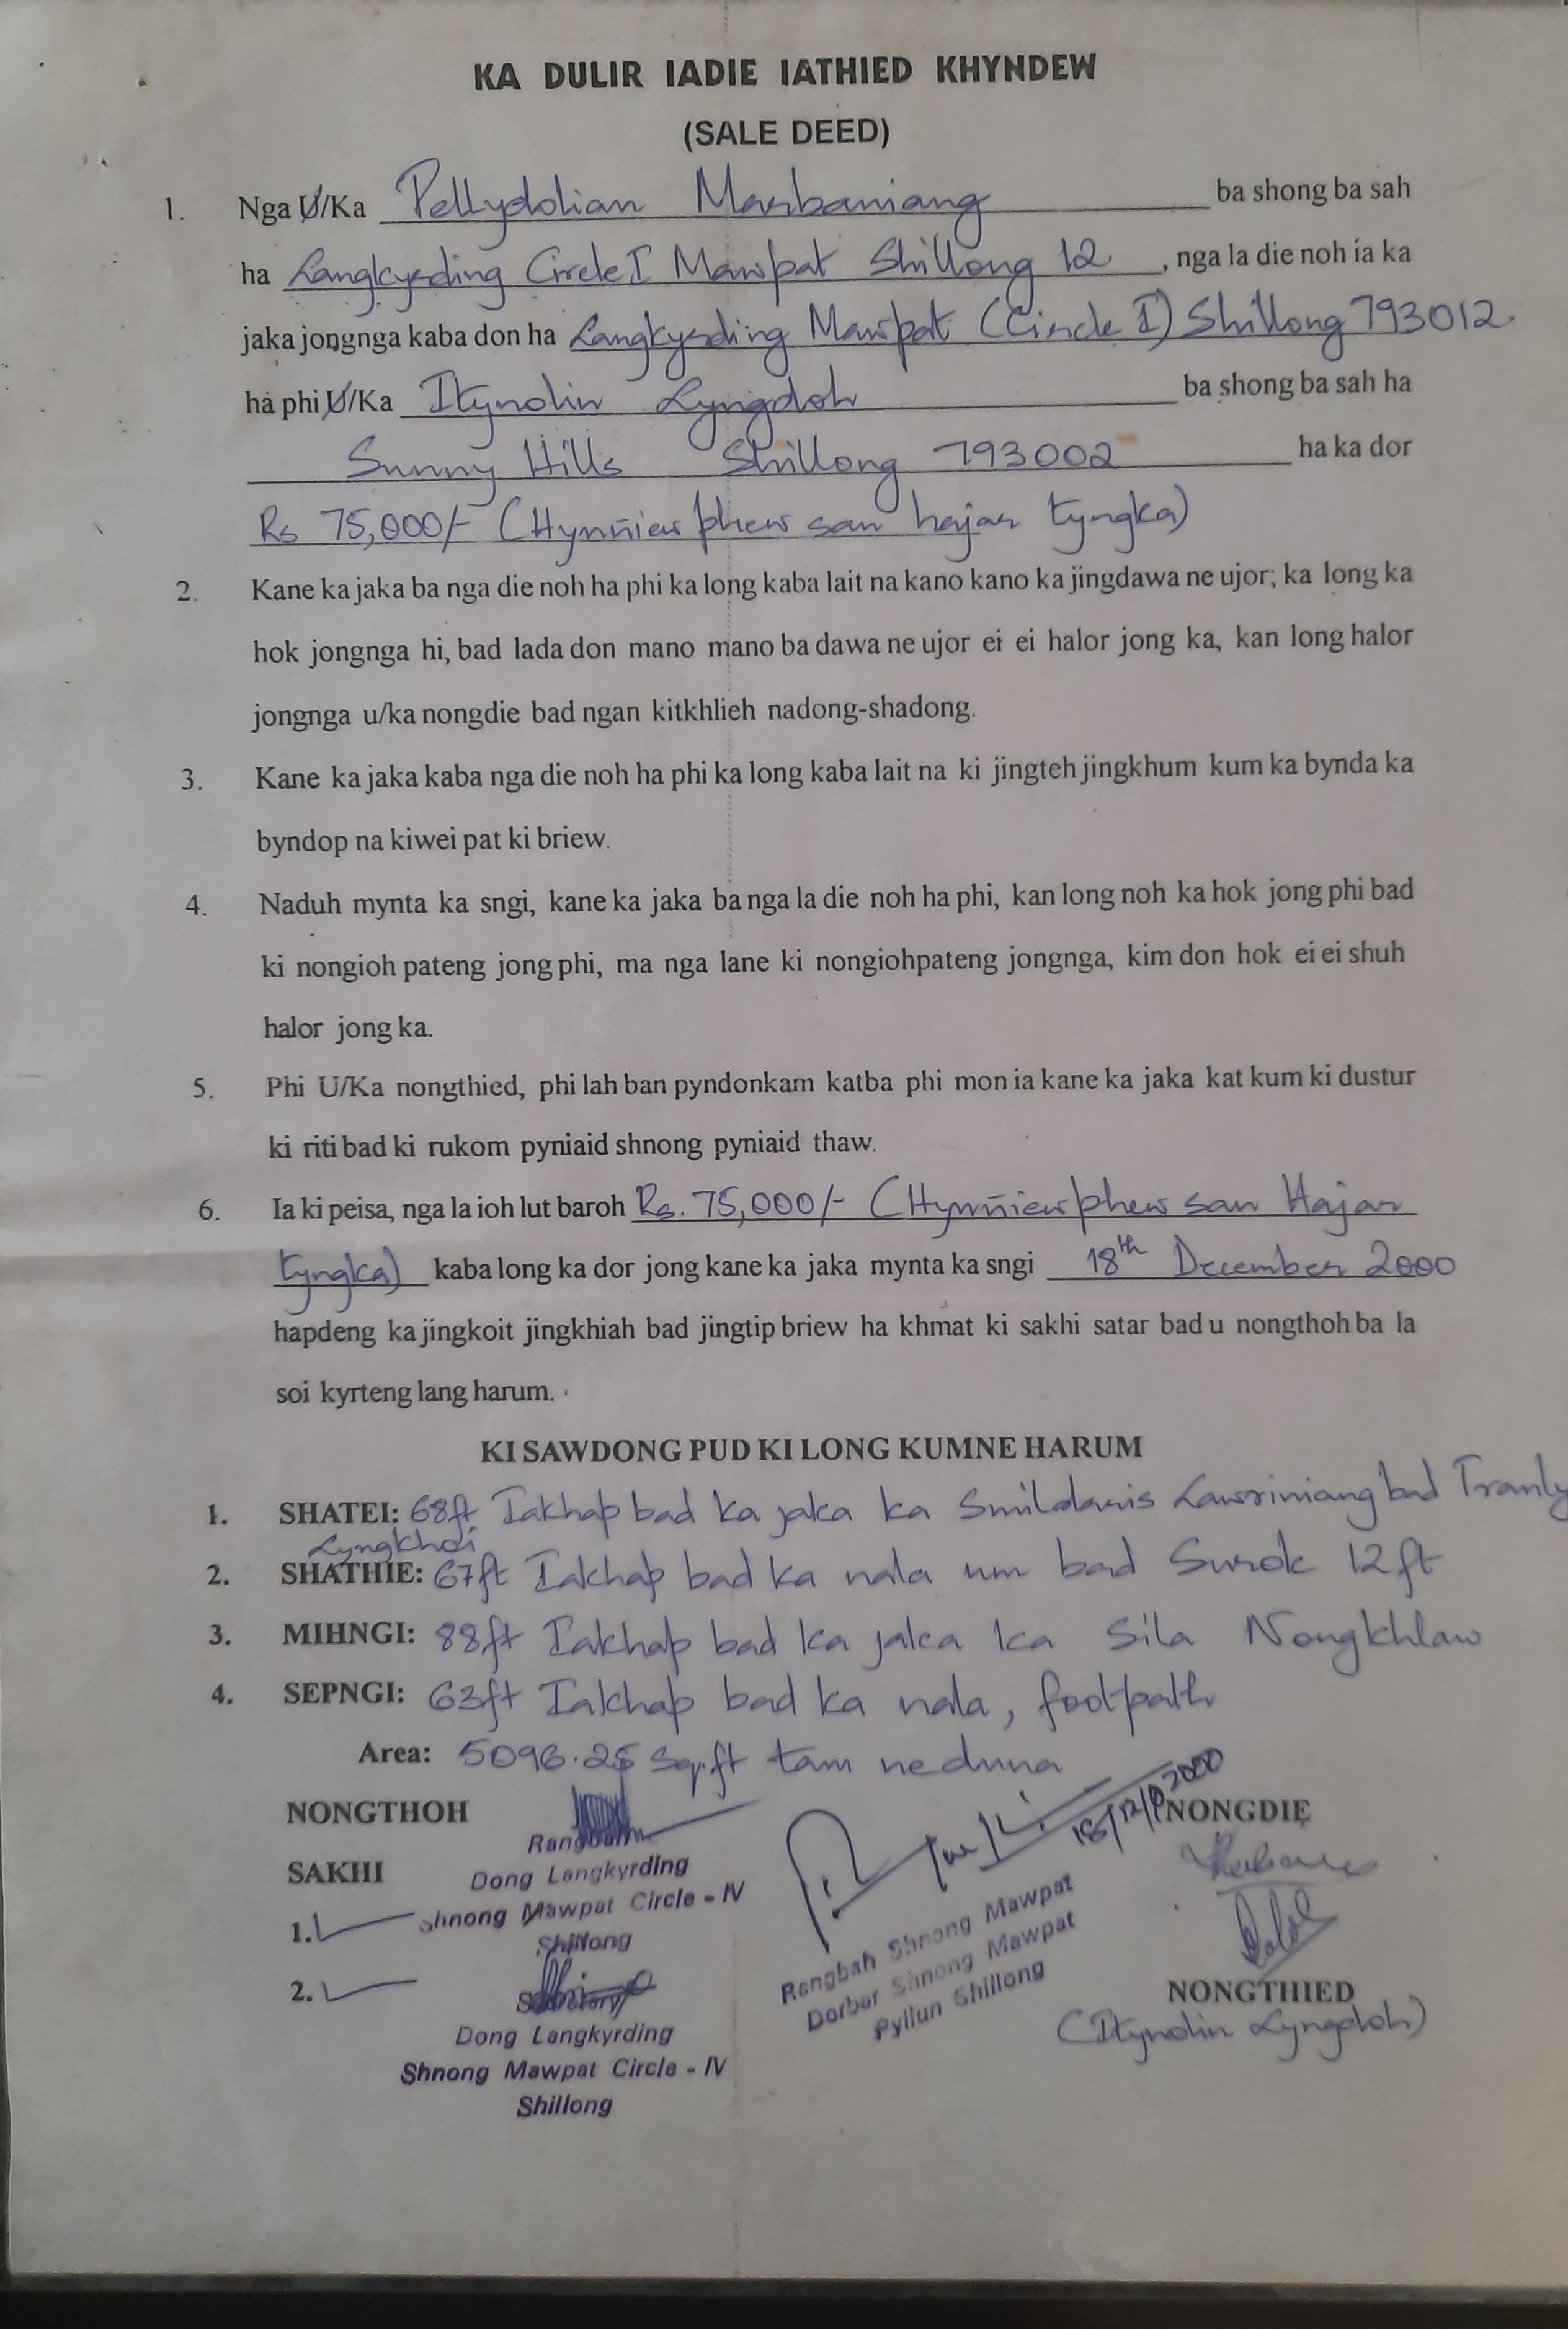 KA DULIR IADIE IATHIED KHYNDEW
(SALE DEED)
1. Nga U/Ka Pellydolian Marbaniang ba shong ba sah
ha Langkyrding Circle I Mawpat Shillong 12, nga la die noh ia ka
jaka jongnga kaba don ha Langkyrding Mawpat (Circle I) Shillong 793012.
ha phi U/Ka Itynolin Lyngdoh ba shong ba sah ha
Sunny Hills Shillong 793002 ha ka dor
Rs 75,000/- (Hynñiew phew san hajar tyngka)
2. Kane ka jaka ba nga die noh ha phi ka long kaba lait na kano kano ka jingdawa ne ujor; ka long ka
hok jongnga hi, bad lada don mano mano ba dawa ne ujor ei ei halor jong ka, kan long halor
jongnga u/ka nongdie bad ngan kitkhlieh nadong-shadong.
3. Kane ka jaka kaba nga die noh ha phi ka long kaba lait na ki jingteh jingkhum kum ka bynda ka
byndop na kiwei pat ki briew.
4. Naduh mynta ka sngi, kane ka jaka ba nga la die noh ha phi, kan long noh ka hok jong phi bad
ki nongioh pateng jong phi, ma nga lane ki nongiohpateng jongnga, kim don hok ei ei shuh
halor jong ka.
5. Phi U/Ka nongthied, phi lah ban pyndonkam katba phi mon ia kane ka jaka kat kum ki dustur
ki riti bad ki rukom pyniaid shnong pyniaid thaw.
6. Ia ki peisa, nga la ioh lut baroh Rs. 75,000/- (Hynñiewphew san Hajar
tyngka) kaba long ka dor jong kane ka jaka mynta ka sngi 18th December 2000
hapdeng ka jingkoit jingkhiah bad jingtip briew ha khmat ki sakhi satar bad u nongthoh ba la
soi kyrteng lang harum.
KI SAWDONG PUD KI LONG KUMNE HARUM
1. SHATEI: 68ft Iakhap bad ka jaka ka Smildaris Lawriniang bad Tranly
Lyngkhoi
2. SHATHIE: 67ft Iakhap bad ka nala um bad Surok 12ft
3. MIHNGI: 88ft Iakhap bad ka jaka ka Sila Nongkhlaw
4. SEPNGI: 63ft Iakhap bad ka nala, footpath
Area: 5096.25 Sq.ft tam ne duna
NONGTHOH
SAKHI
1.
2.
Rangbah
Dong Langkyrding
Shnong Mawpat Circle - IV
Shillong
Secretary
Dong Langkyrding
Shnong Mawpat Circle - IV
Shillong
18/12/2000
Rangbah Shnong Mawpat
Dorbar Shnong Mawpat
Pyllun Shillong
NONGDIE
NONGTHIED
(Itynolin Lyngdoh)